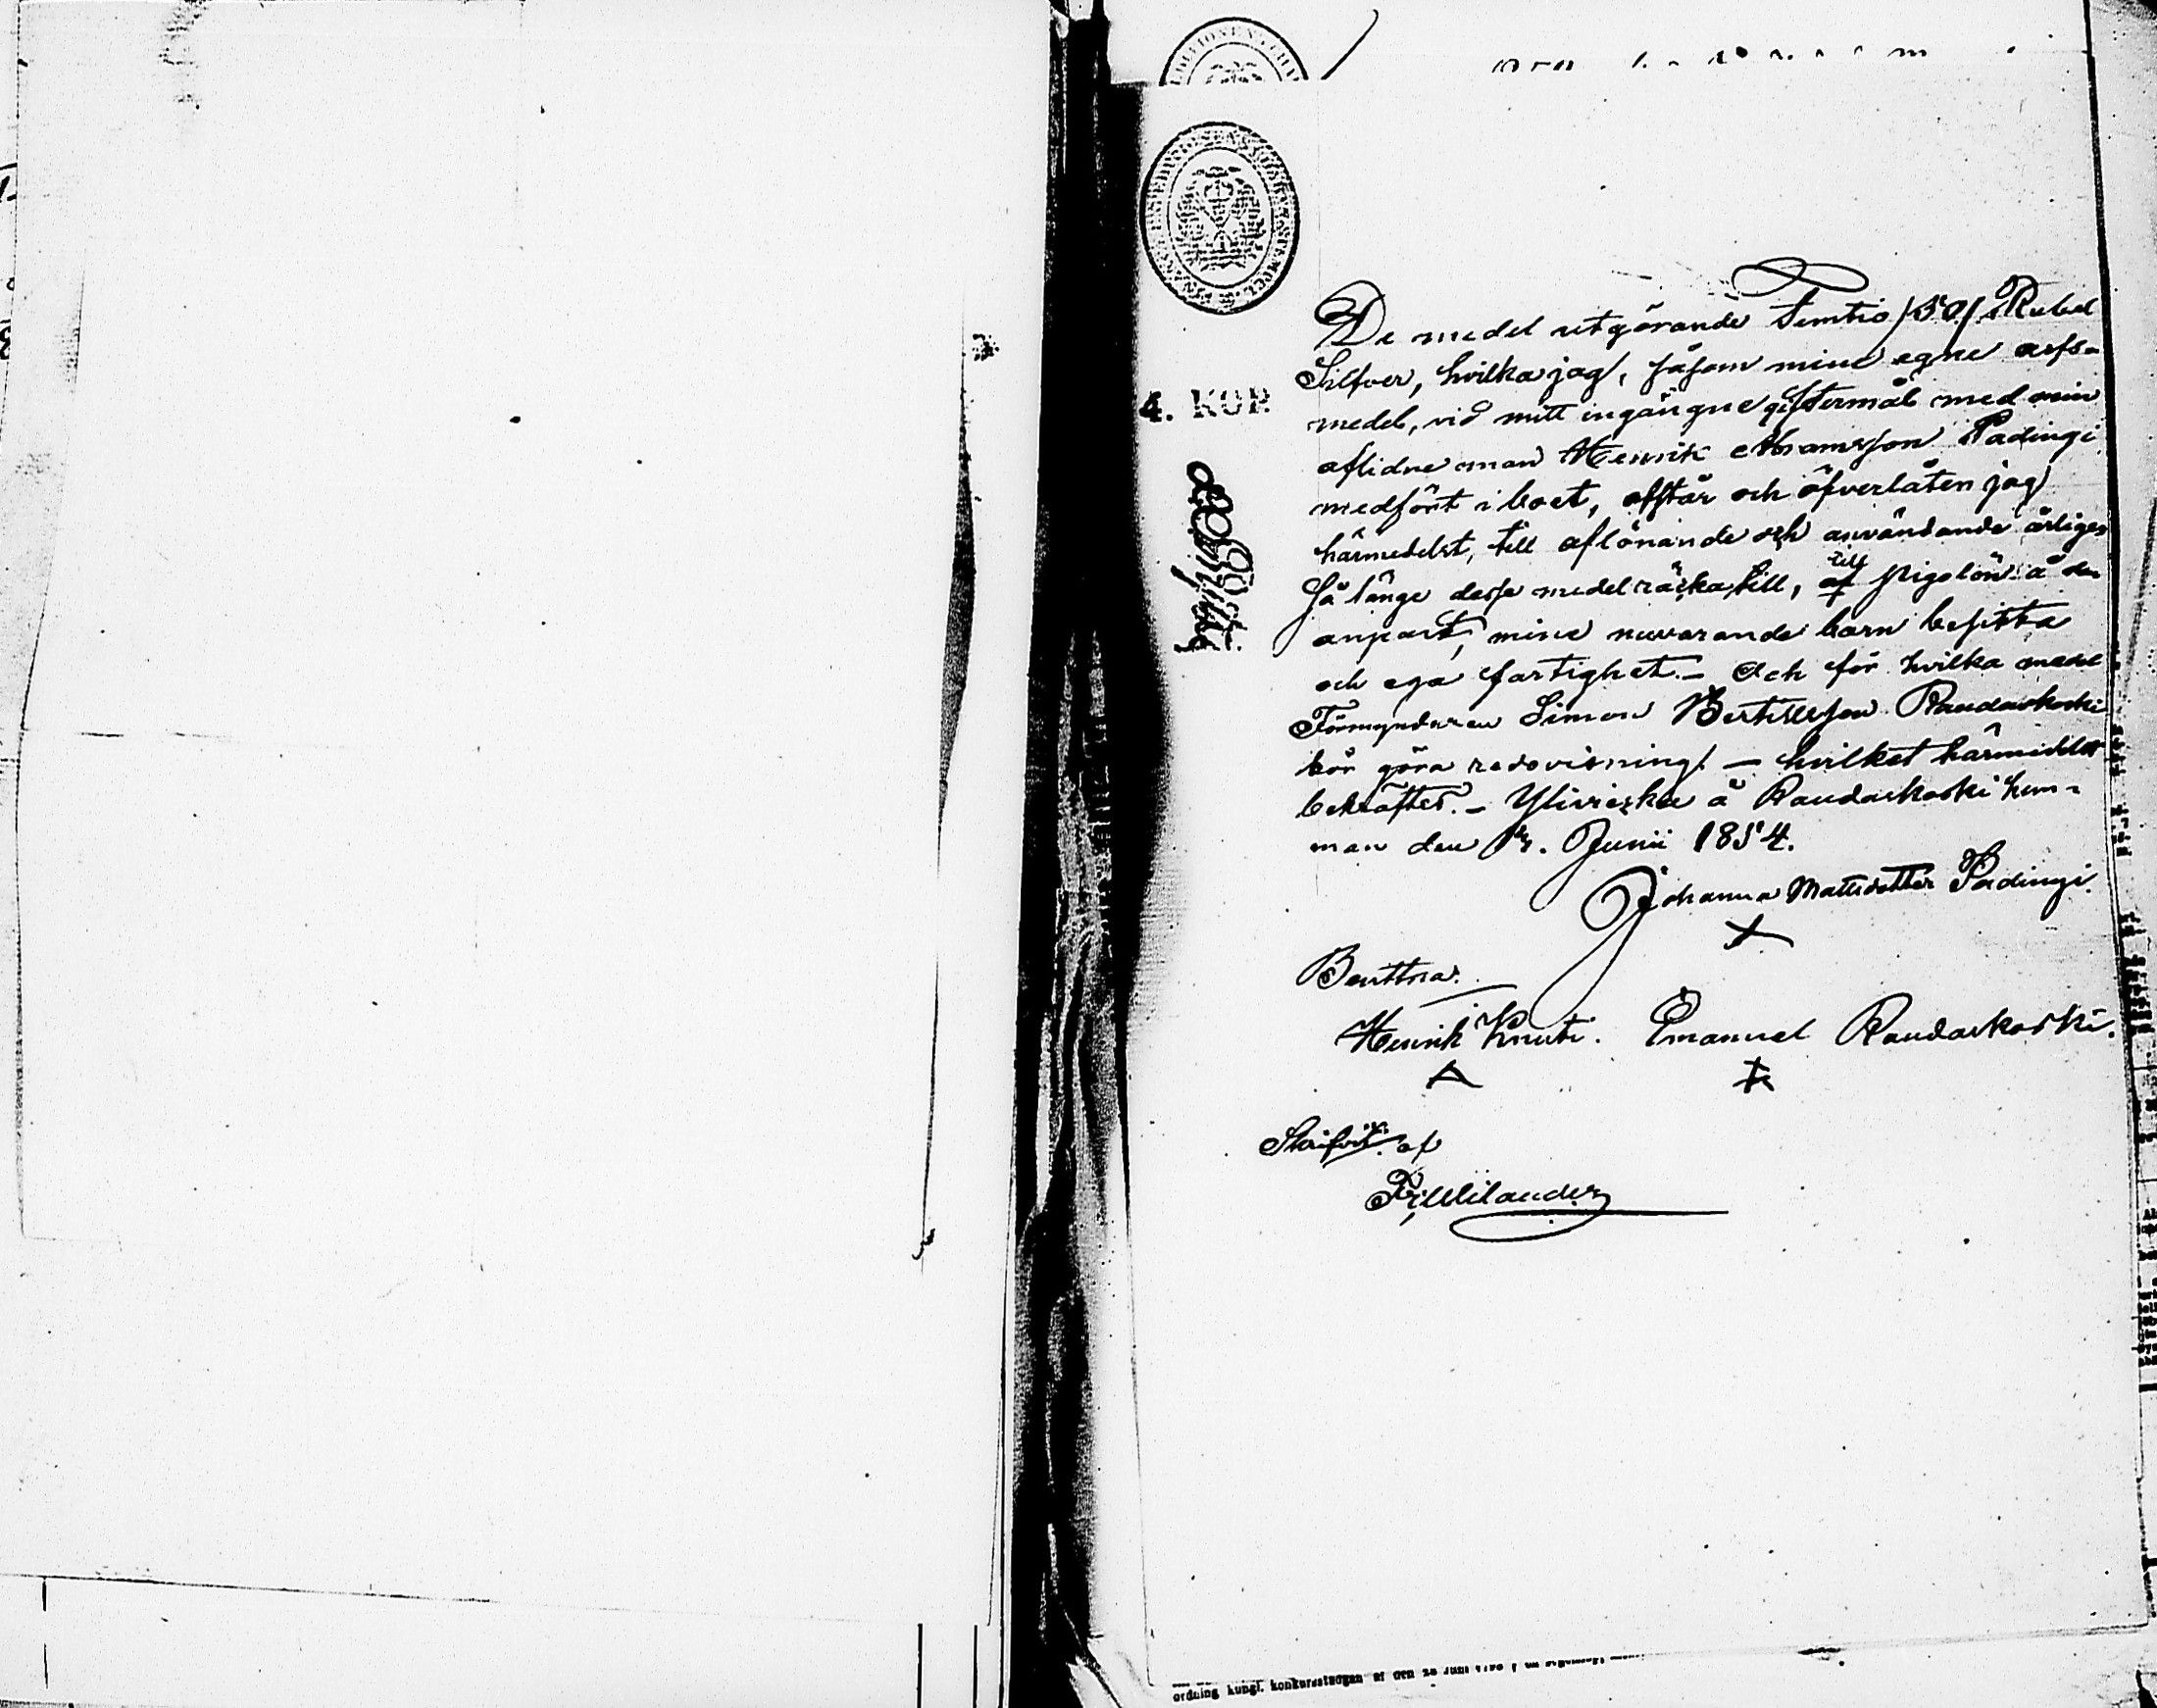 4. KOP.
De medel utgörande Femtio /50/ Rubel
Silfver, hvilka jag, såsom mine egne arfs-
medel, vid mitt ingångne giftermål med min
aflidne man Henrik Abramsson Padingi
medfört i boet, afstår och öfverlåten jag
härmedelst, till aflönande och användande årligen
så länge desse medel räcka till, till pigolön å den
anpart, mine nuvarande barn besitta
och ega fastighet. – Och för hvilka medel
Förmyndaren Simon Bertilsson Raudaskoski
bör göra redovisning. – hvilket härmedelst
bekräftes. – Ylivieska å Raudaskoski hem-
man den Junii 1854.
Johanna Mattsdotter Padingi.
Bevittna.
Henrik Knuti. Emanuel Raudaskoski.
Skrifvit af
ordning kungl. konkursstadgan af den 28 Juni